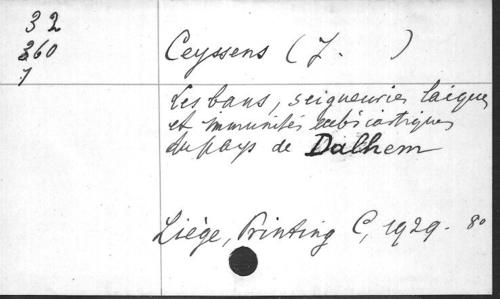 32
360
7
Ceyssens (J. )
Les bans, seigneuries laiques
et immunités ecclésiastiques
du pays de Dalhem
Liège, Printing C, 1929. 8o